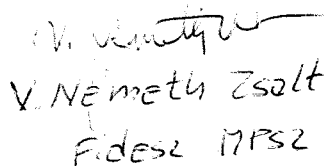 V. Németh Zsolt
Fidesz MPSZ